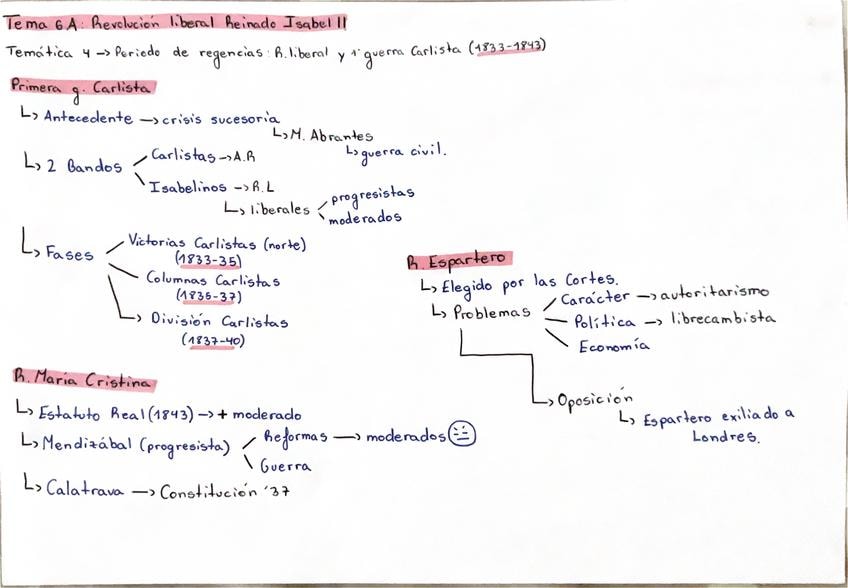 Tema 6A: Revolución liberal Reinado Isabel II
Temática 4 → Periodo de regencias: R. liberal y 1ª guerra Carlista (1833-1843)
Primera g. Carlista
↳ Antecedente → crisis sucesoria
↳ M. Abrantes
↳ guerra civil.
↳ 2 Bandos
Carlistas → A.R
Isabelinos → R.L
↳ liberales
progresistas
moderados
↳ Fases
Victorias Carlistas (norte)
(1833-35)
Columnas Carlistas
(1835-37)
División Carlistas
(1837-40)
R. María Cristina
↳ Estatuto Real (1843) → + moderado
↳ Mendizábal (progresista)
Reformas → moderados
Guerra
↳ Calatrava → Constitución '37
R. Espartero
↳ Elegido por las Cortes.
↳ Problemas
Carácter → autoritarismo
Política → librecambista
Economía
Oposición
↳ Espartero exiliado a
Londres.